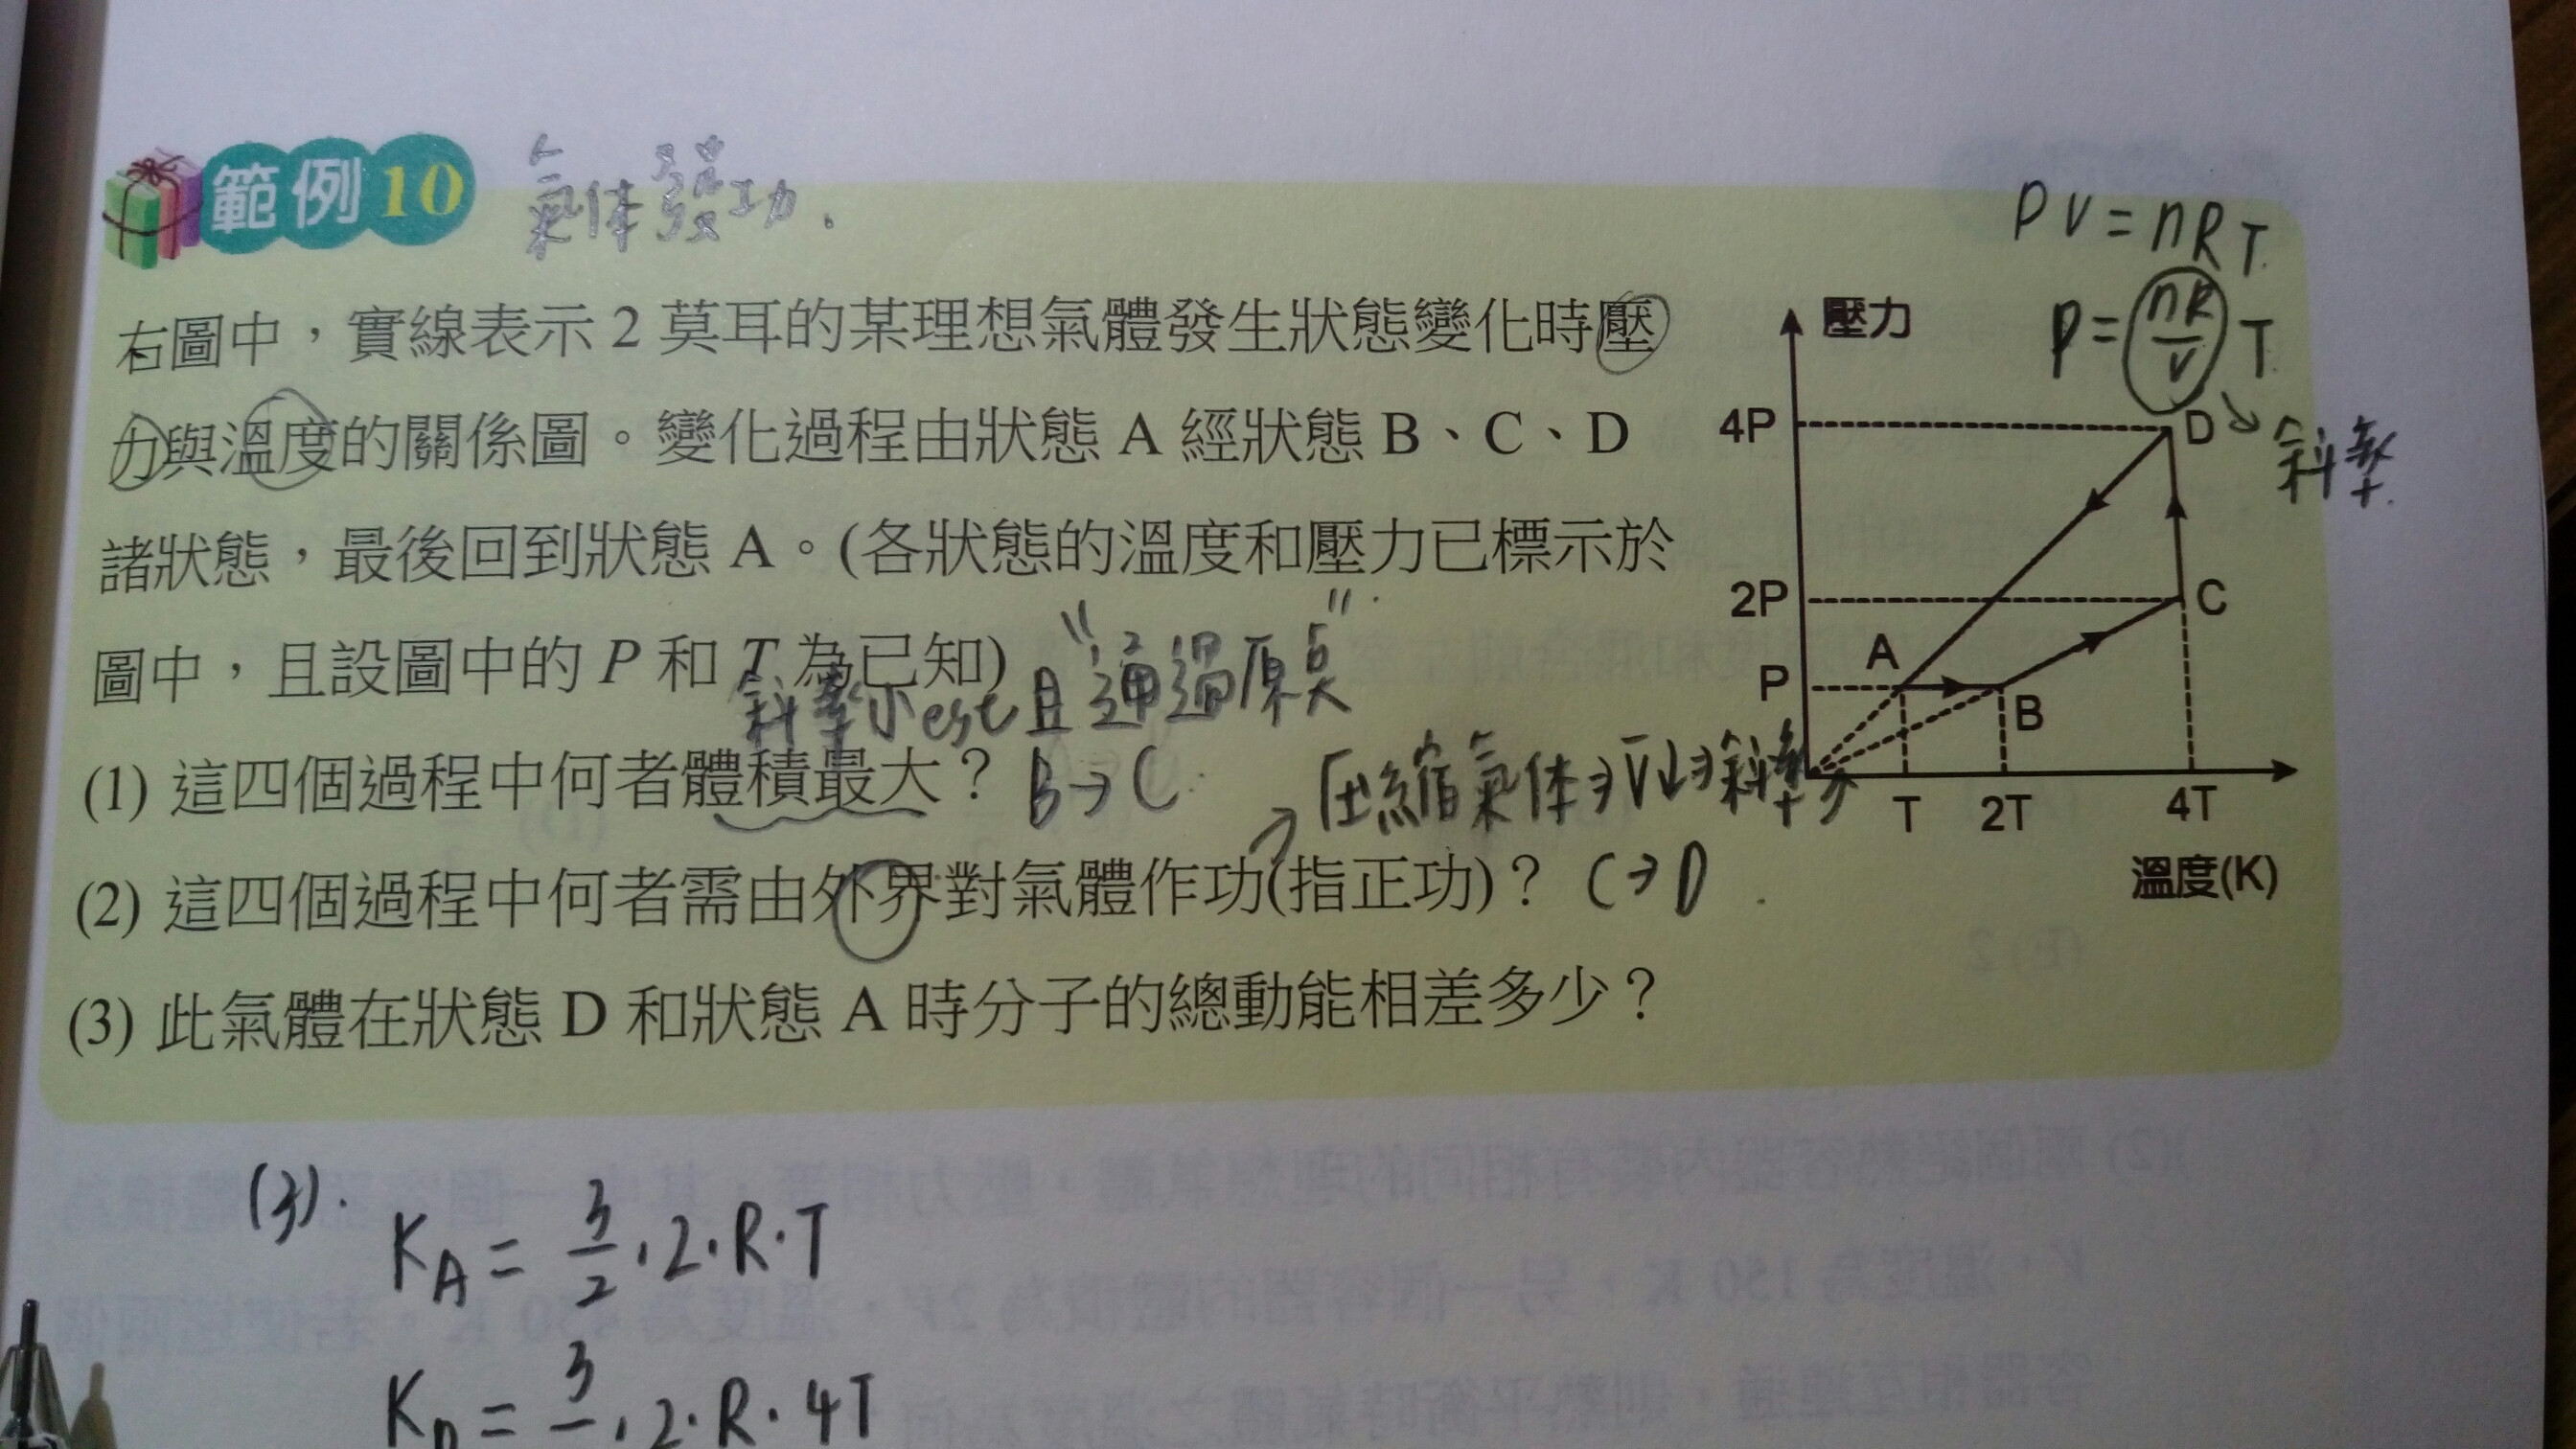 範例10 氣体發功.
右圖中，實線表示 2 莫耳的某理想氣體發生狀態變化時壓
力與溫度的關係圖。變化過程由狀態 A 經狀態 B、C、D
諸狀態，最後回到狀態 A。(各狀態的溫度和壓力已標示於
圖中，且設圖中的 P 和 T 為已知)
斜率小est且"通過原点".
(1) 這四個過程中何者體積最大？ B→C
壓縮氣体→V↓→斜率
(2) 這四個過程中何者需由外界對氣體作功(指正功)？ C→D
(3) 此氣體在狀態 D 和狀態 A 時分子的總動能相差多少？
PV=nRT
P=nR/V T
斜率
壓力
4P
D
2P
C
A
P
B
T 2T 4T
溫度(K)
(3).
KA = 3/2 · 2 · R · T
= 3 · 2 · R · 4T